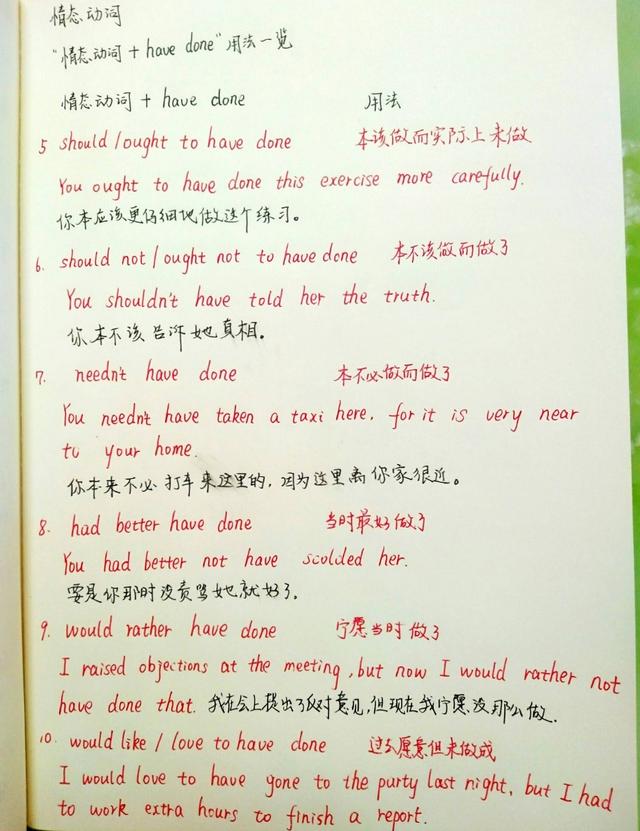 情态动词
"情态动词 + have done" 用法一览
情态动词 + have done 用法
5 should / ought to have done 本该做而实际上未做
You ought to have done this exercise more carefully.
你本应该更仔细地做这个练习。
6. should not / ought not to have done 本不该做而做了
You shouldn't have told her the truth.
你本不该告诉她真相。
7. needn't have done 本不必做而做了
You needn't have taken a taxi here, for it is very near
to your home.
你本来不必打车来这里的,因为这里离你家很近。
8. had better have done 当时最好做了
You had better not have scolded her.
要是你那时没责骂她就好了。
9. would rather have done 宁愿当时做了
I raised objections at the meeting, but now I would rather not
have done that. 我在会上提出了反对意见,但现在我宁愿没那么做.
10. would like / love to have done 过去愿意但未做成
I would love to have gone to the party last night, but I had
to work extra hours to finish a report.